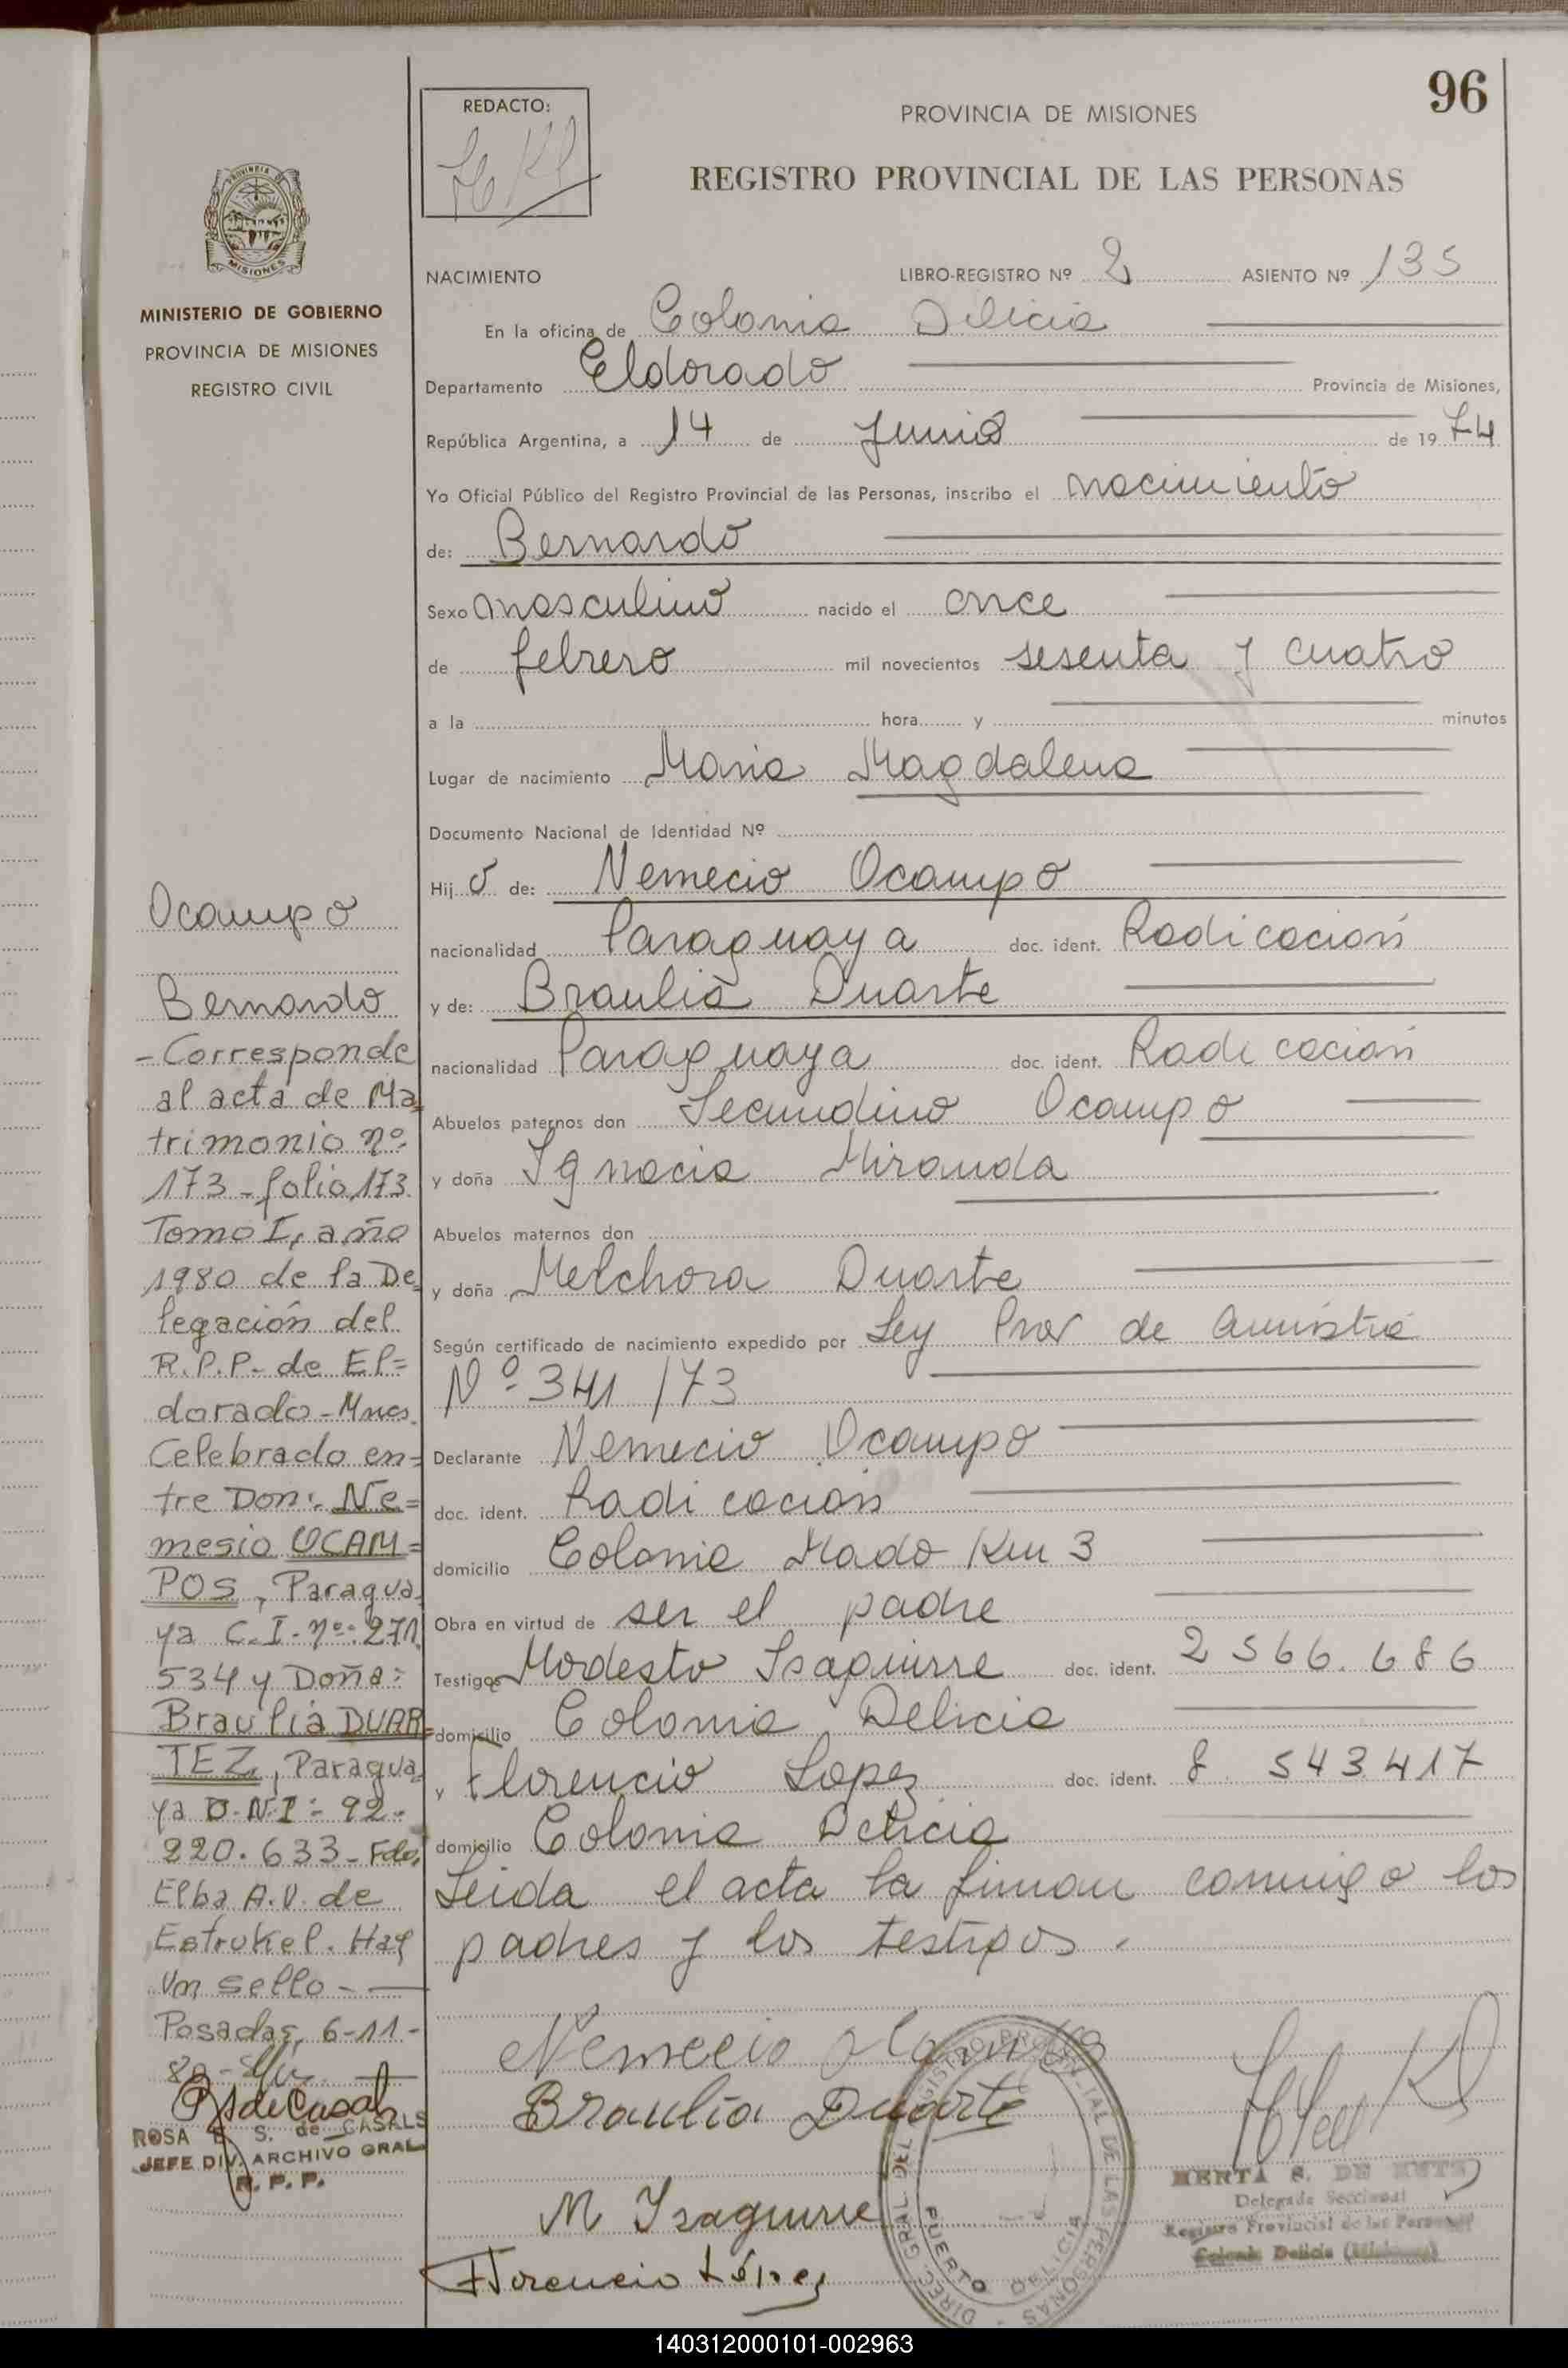 96
REDACTO:
PROVINCIA DE MISIONES
REGISTRO PROVINCIAL DE LAS PERSONAS
PROVINCIA DE
MISIONES
MINISTERIO DE GOBIERNO
PROVINCIA DE MISIONES
REGISTRO CIVIL
NACIMIENTO LIBRO-REGISTRO Nº 2 ASIENTO Nº 135
En la oficina de Colonia Delicia
Departamento Eldorado Provincia de Misiones,
República Argentina, a 14 de Junio de 1974
Yo Oficial Público del Registro Provincial de las Personas, inscribo el nacimiento
de: Bernardo
Sexo masculino nacido el once
de febrero mil novecientos sesenta y cuatro
a la hora y minutos
Lugar de nacimiento Maria Magdalena
Documento Nacional de Identidad Nº
Hijo de: Nemecio Ocampo
nacionalidad Paraguaya doc. ident. Radicación
y de: Braulia Duarte
nacionalidad Paraguaya doc. ident. Radicación
Abuelos paternos don Secundino Ocampo
y doña Ignacia Miranda
Abuelos maternos don
y doña Melchora Duarte
Según certificado de nacimiento expedido por Ley Prov de Amnistia
Nº 341/73
Declarante Nemecio Ocampo
doc. ident. Radicación
domicilio Colonia Mado Km 3
Obra en virtud de ser el padre
Testigos Modesto Isaguirre doc. ident. 2566.686
domicilio Colonia Delicia
y Florencio Lopez doc. ident. 8 543.417
domicilio Colonia Delicia
Leida el acta la firman conmigo los
padres y los testigos.
Nemecio
Braulia Duarte
M Izaguirre
Florencio López
Ocampo
Bernardo
- Corresponde
al acta de Ma=
trimonio nº
173 - folio 173
Tomo I, año
1980 de la De=
legación del
R.P.P. - de El=
dorado - Mnes.
Celebrado en=
tre Don: Ne=
mesio OCAM=
POS, Paragua=
ya C.I. nº: 271.
534 y Doña:
Braulia DUAR=
TEZ, Paragua=
ya D.N.I: 92.
220.633 - Fdo,
Elba A.V. de
Estrukel. Hay
un sello -
Posadas, 6-11-
80 -
ROSA E. S. de CASALS
JEFE DIV. ARCHIVO GRAL
R. P. P.
DIREC. GRAL. DEL REGISTRO PROVINCIAL DE LAS PERSONAS
PUERTO DELICIA
HERTA S. DE
Delegada Seccional
Registro Provincial de las Personas
Colonia Delicia (Misiones)
140312000101-002963